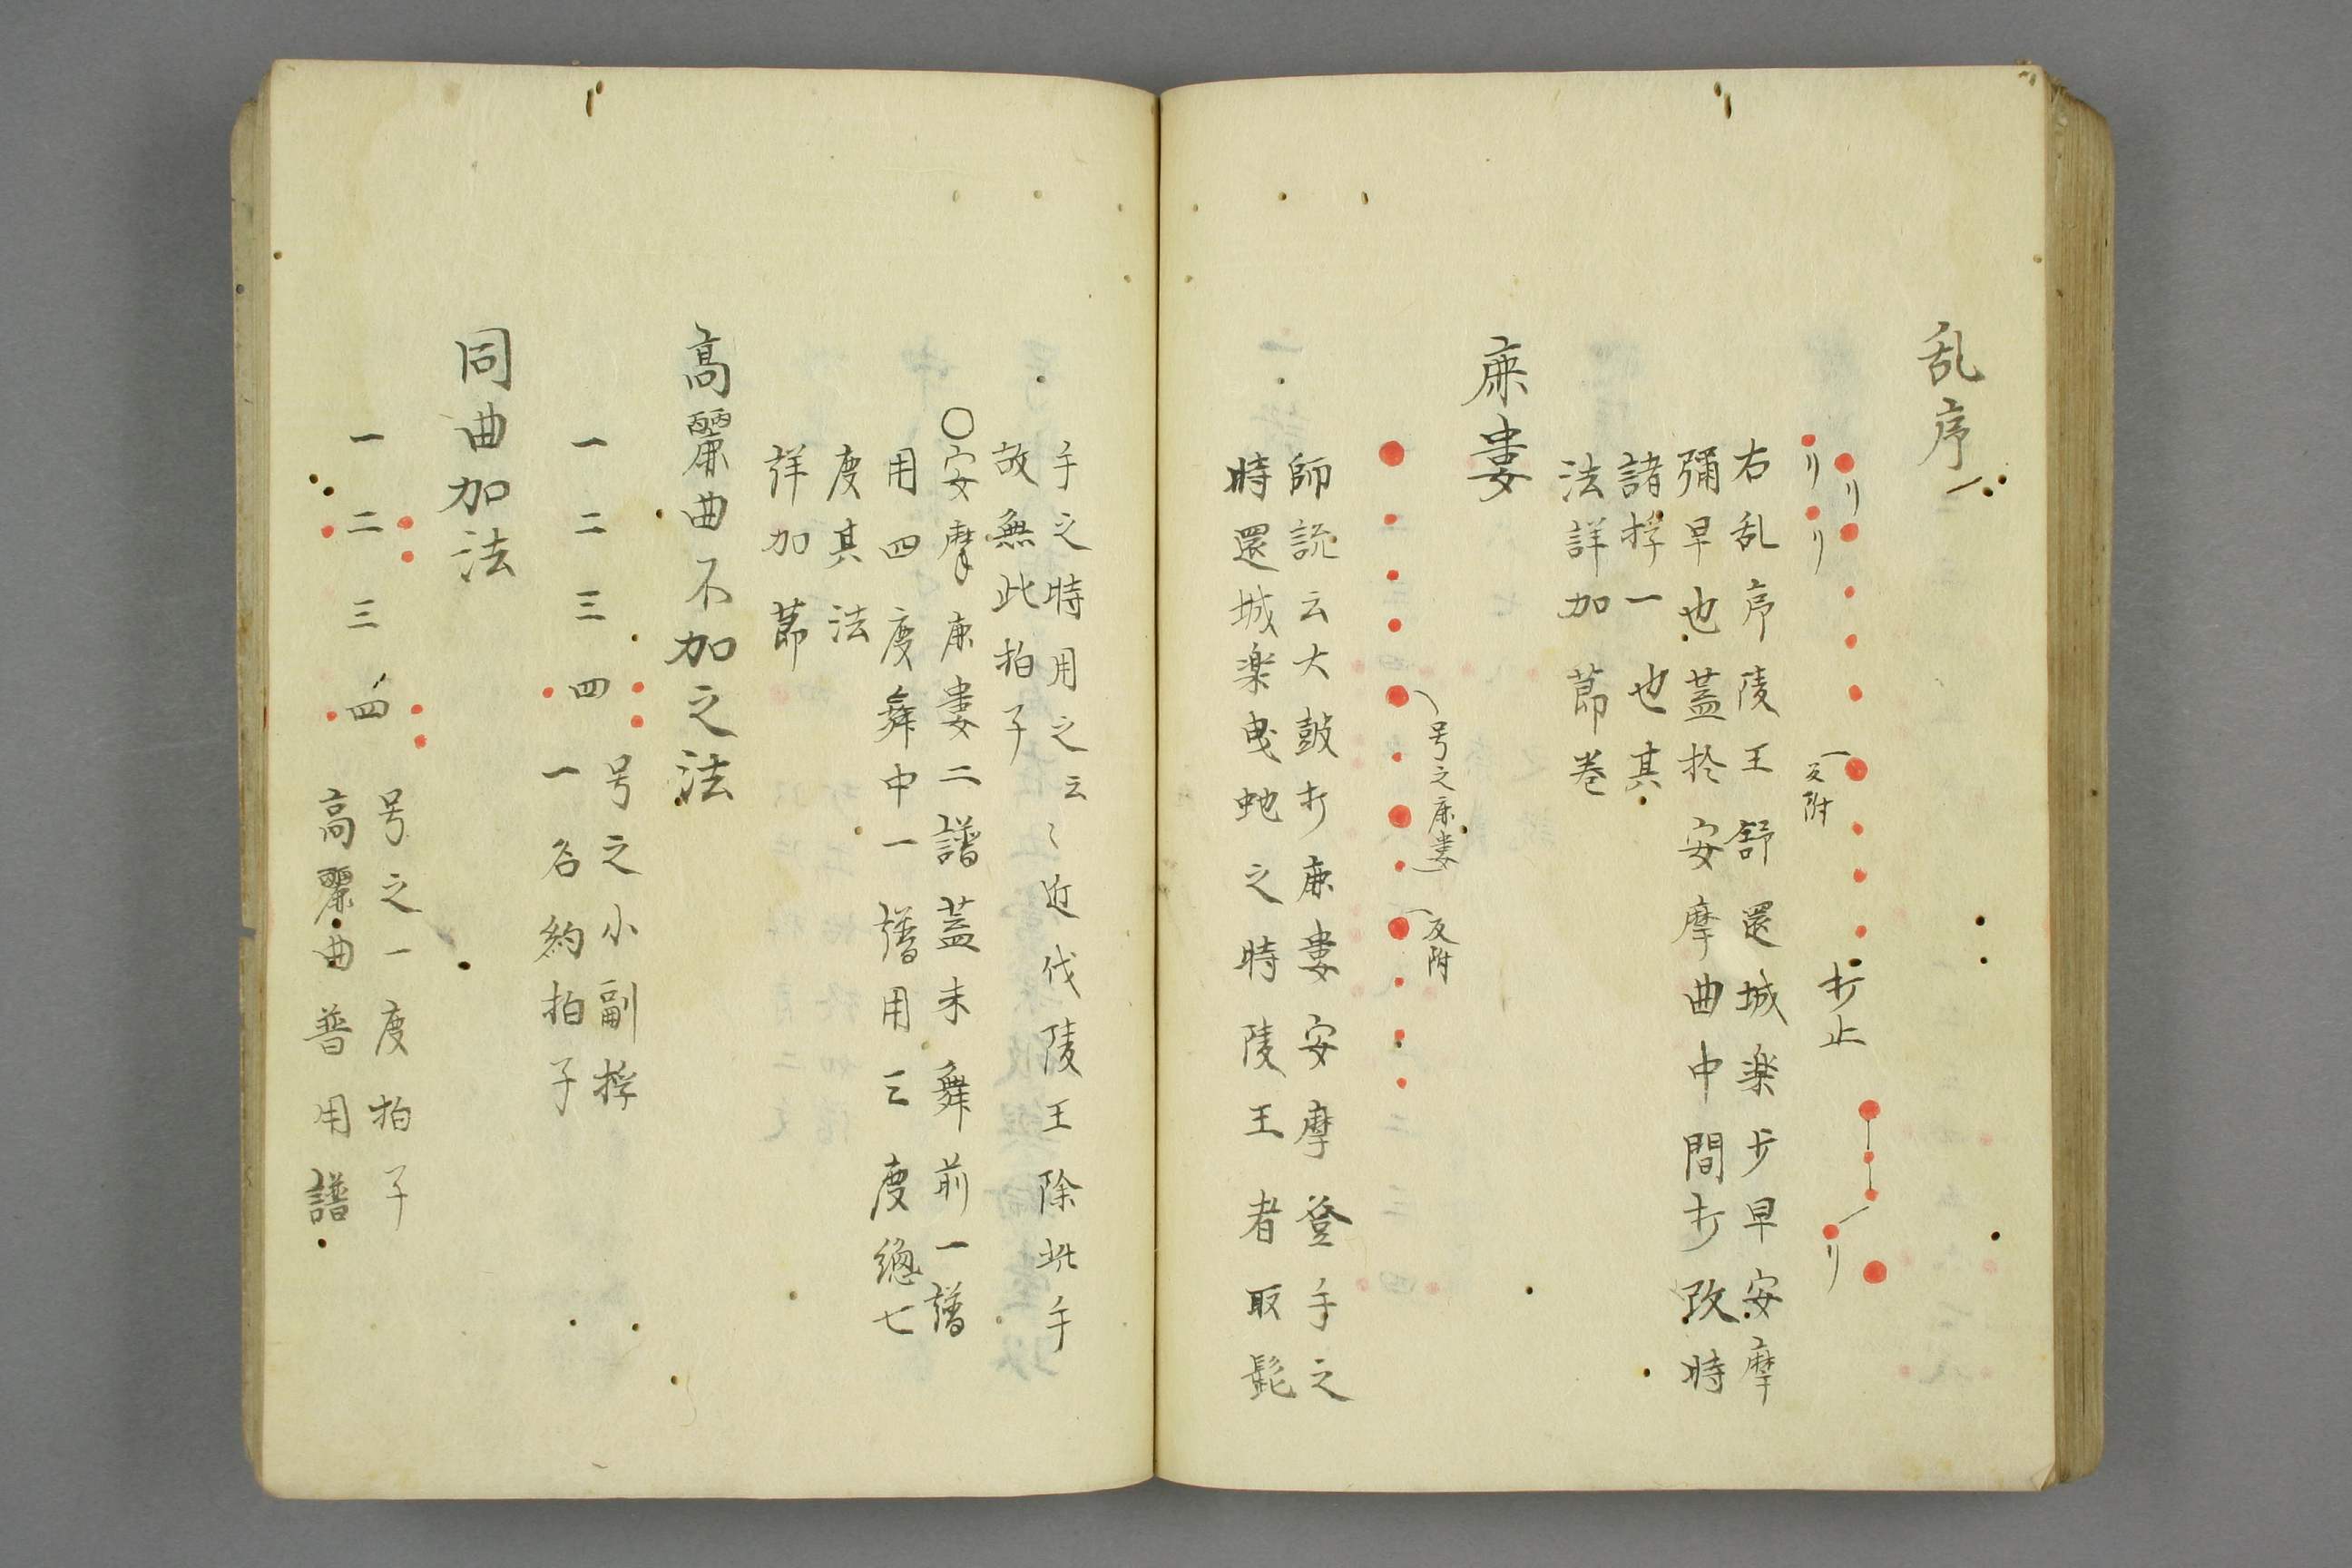 乱序
リ
リ
リ
反附
打止
リ
右乱序陵王舒還城楽歩早安摩
彌早也蓋於安摩曲中間打改時
諸桴一也其
法詳加莭巻
鹿婁
号之鹿婁
反附
師説云大皷打鹿婁安摩登手之
時還城楽曳虵之時陵王者取髭
手之時用之云〻近代陵王除此手
故無此拍子
○安摩鹿婁二譜蓋未舞前一譜
用四度舞中一譜用三度總七
度其法
詳加莭
高麗曲不加之法
一 二 三 四
号之小副桴
一名約拍子
同曲加法
一 二 三 四
号之一度拍子
高麗曲普用譜